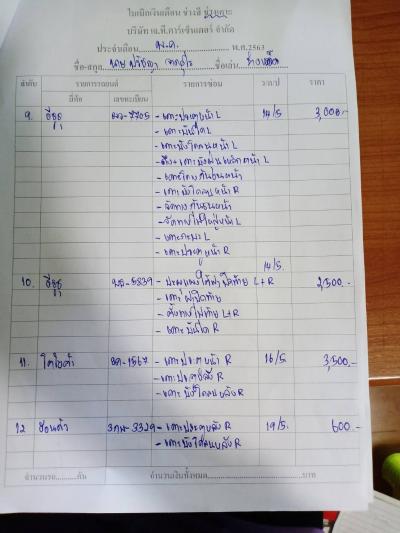 ใบเบิกเงินเดือน ช่างสี ช่างเคาะ
บริษัท เอ.ที.คาร์เซ็นเตอร์ จำกัด
ประจำเดือน พ.ค. พ.ศ.2563
ชื่อ-สกุล นาย ชื่อเล่น
ลำดับ รายการรถยนต์ รายการซ่อม ว/ด/ป ราคา
ยี่ห้อ เลขทะเบียน
9. อีซูซุ 7705 - เคาะประตูหน้า L 14/5 3,000.-
- เคาะบันได L
- เคาะบังโคลนหน้า L
- เคาะบังโคลนหน้า R
- จัดทางกันชนหน้า
- จัดทางไฟใหญ่หน้า L
- เคาะกระบะ L
- เคาะประตูหน้า R
14/5.
10. อีซูซุ 5839 L+R 2,500.-
- เคาะฝาปิดท้าย
- ตั้งทางไฟท้าย L+R
- เคาะบันได R
11. โตโยต้า 1567 - เคาะประตูหน้า R 16/5 3,500.-
- เคาะประตูหลัง R
- เคาะบังโคลนหลัง R
12 ฮอนด้า 3กน-3329 - เคาะประตูหลัง R 19/5. 600.-
- เคาะบังโคลนหลัง R
จำนวนรถ..........คัน จำนวนเงินทั้งหมด..............................บาท